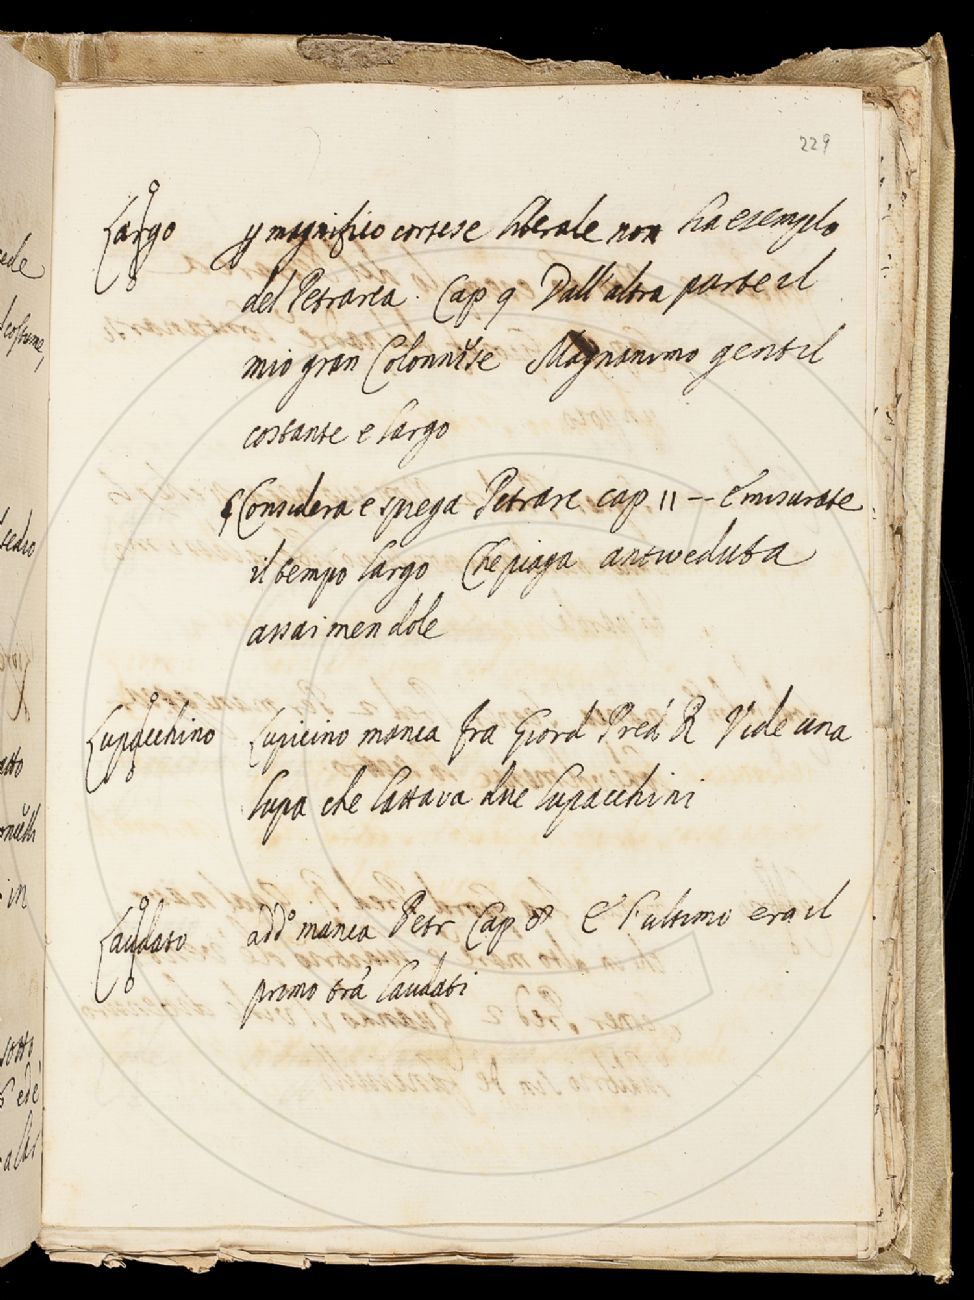 229
Largo p magnifico cortese liberale non ha esemplo
del Petrarca. Cap 9 Dall'altra parte il
mio gran Colonnese Magnanimo gentil
costante e largo
Considera e spega Petrarc cap 11 – E misurate
il tempo largo Che piaga antiveduta
assai men dole
Lupacchino Lupicino manca fra Giord Pred R Vide una
lupa che lattava due lupacchini
Laudato add.o manca Petr Cap 8 E l'ultimo era il
primo tra laudati